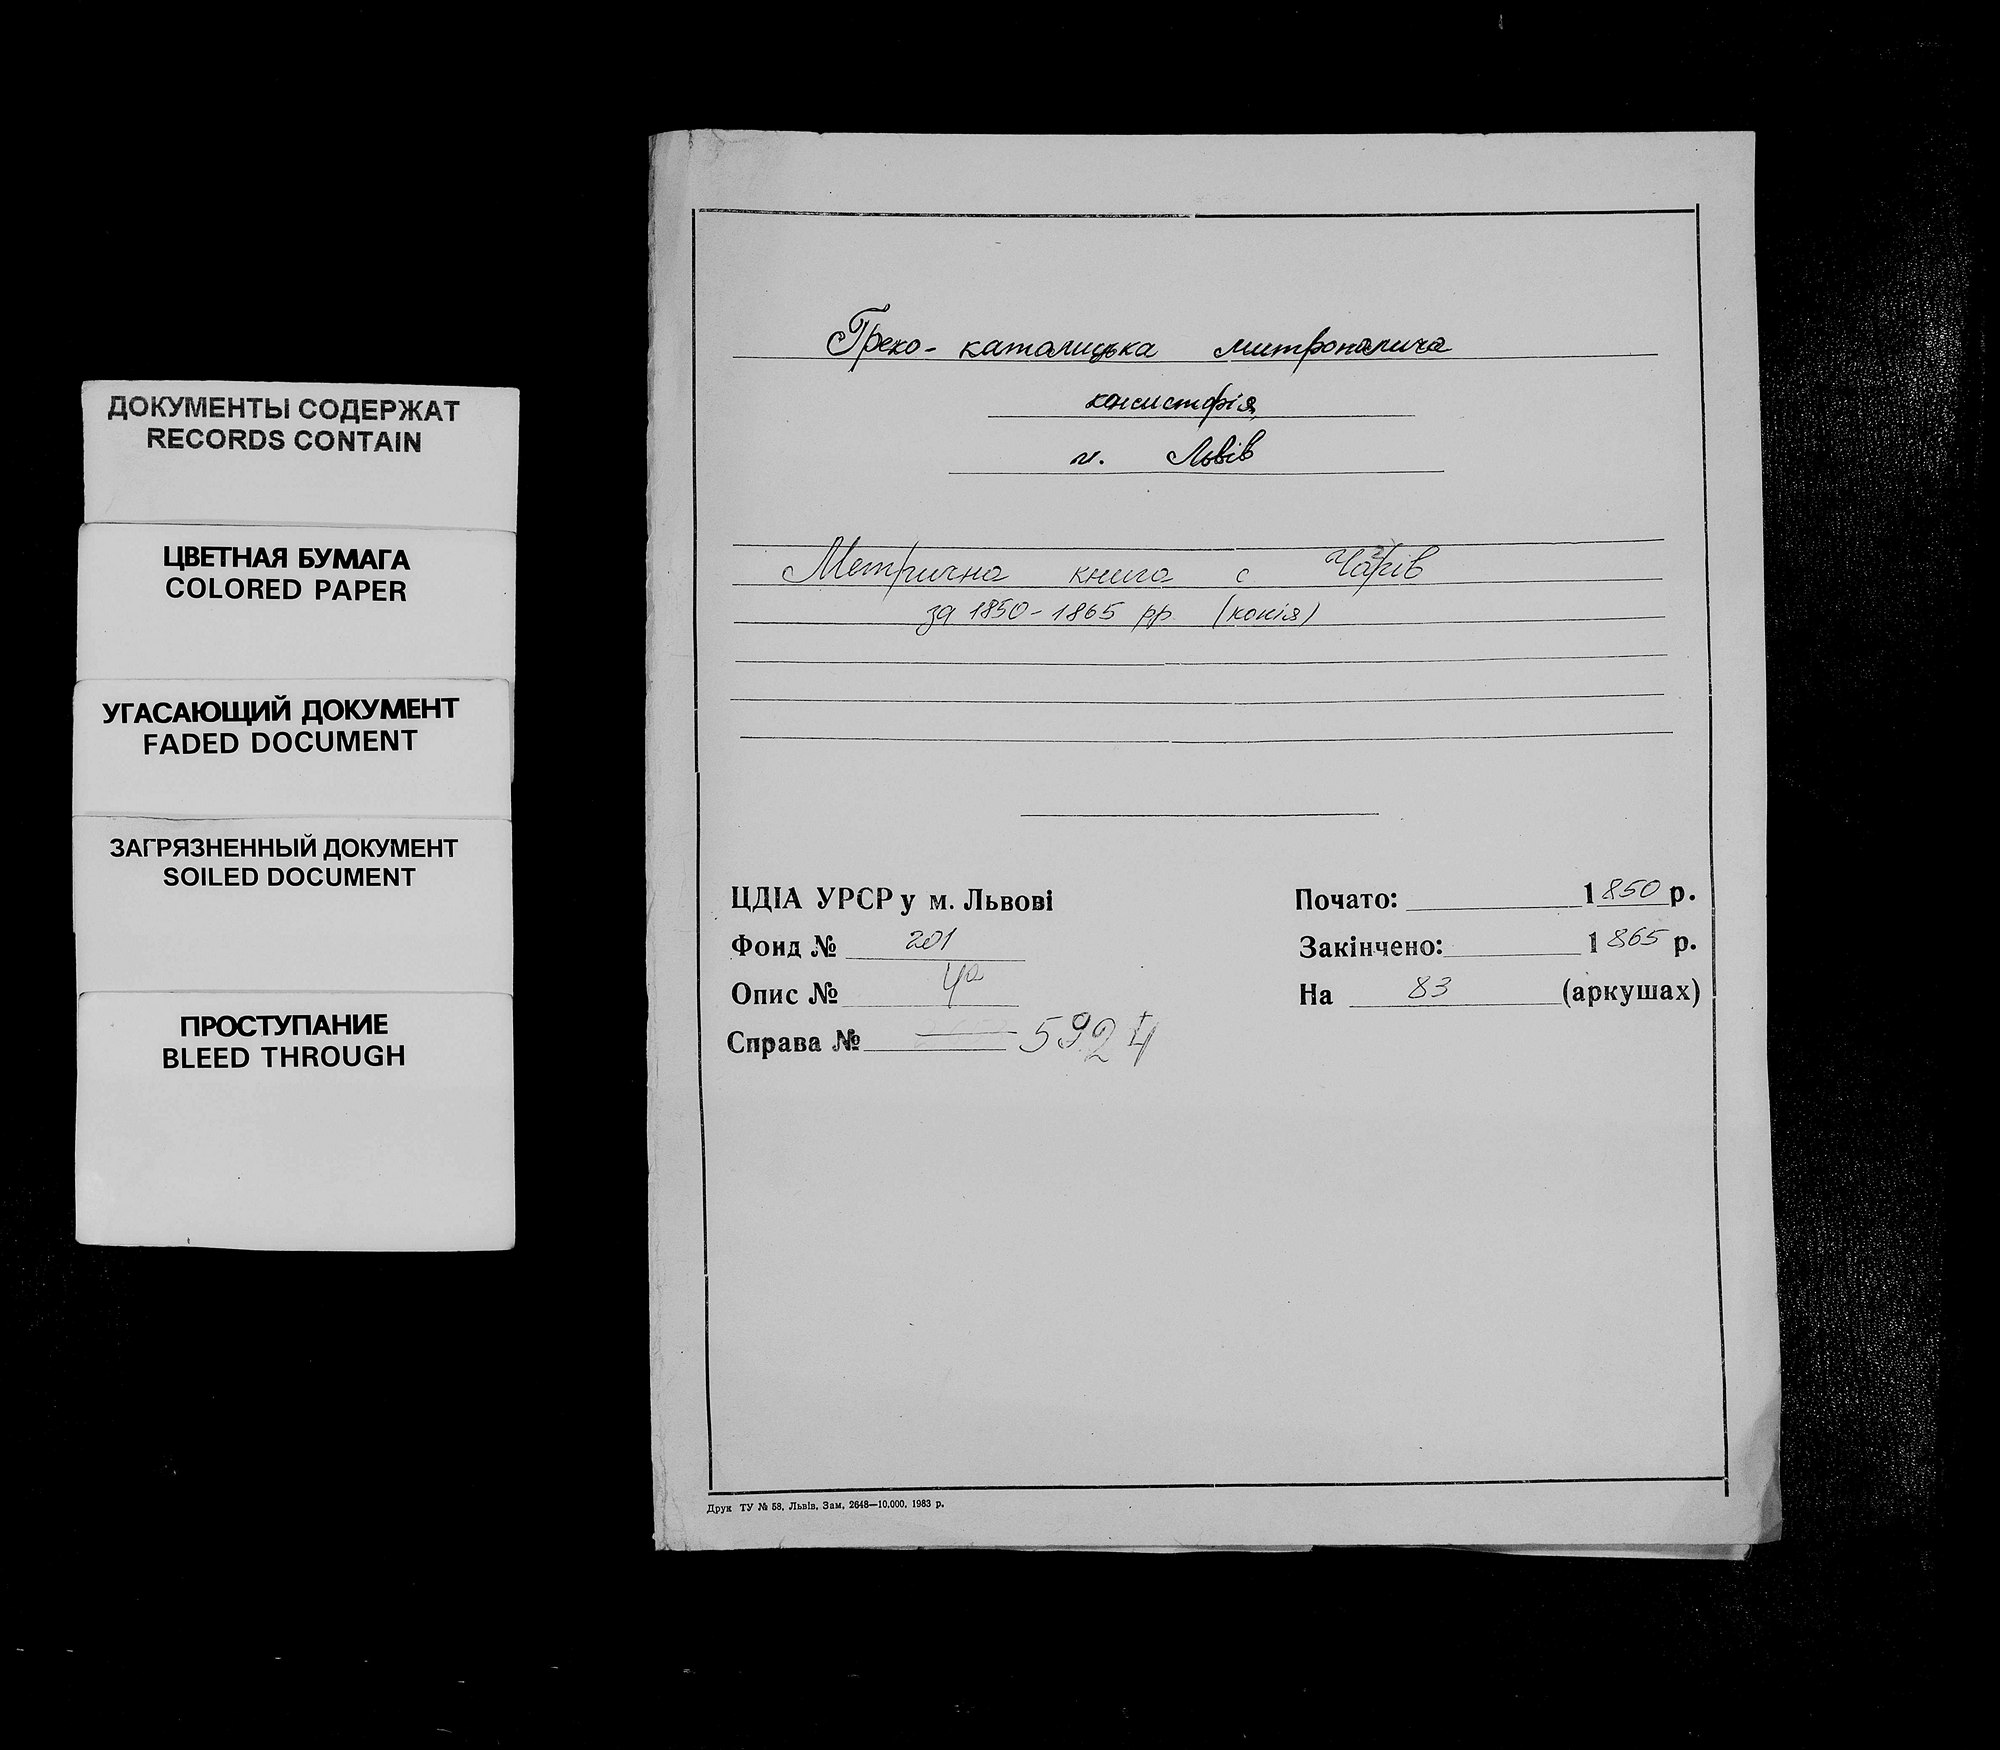 ДОКУМЕНТЫ СОДЕРЖАТ
RECORDS CONTAIN
ЦВЕТНАЯ БУМАГА
COLORED PAPER
УГАСАЮЩИЙ ДОКУМЕНТ
FADED DOCUMENT
ЗАГРЯЗНЕННЫЙ ДОКУМЕНТ
SOILED DOCUMENT
ПРОСТУПАНИЕ
BLEED THROUGH
Греко-католицька митрополича
консисторія,
м. Львів
Метрична книга с
за 1850-1865 рр. (копія)
ЦДІА УРСР у м. Львові
Фонд № 201
Опис № 4а
Справа № 5924
Почато: 1850 р.
Закінчено: 1865 р.
На 83 (аркушах)
Друк ТУ № 58, Львів, Зам, 2648—10.000, 1983 р.